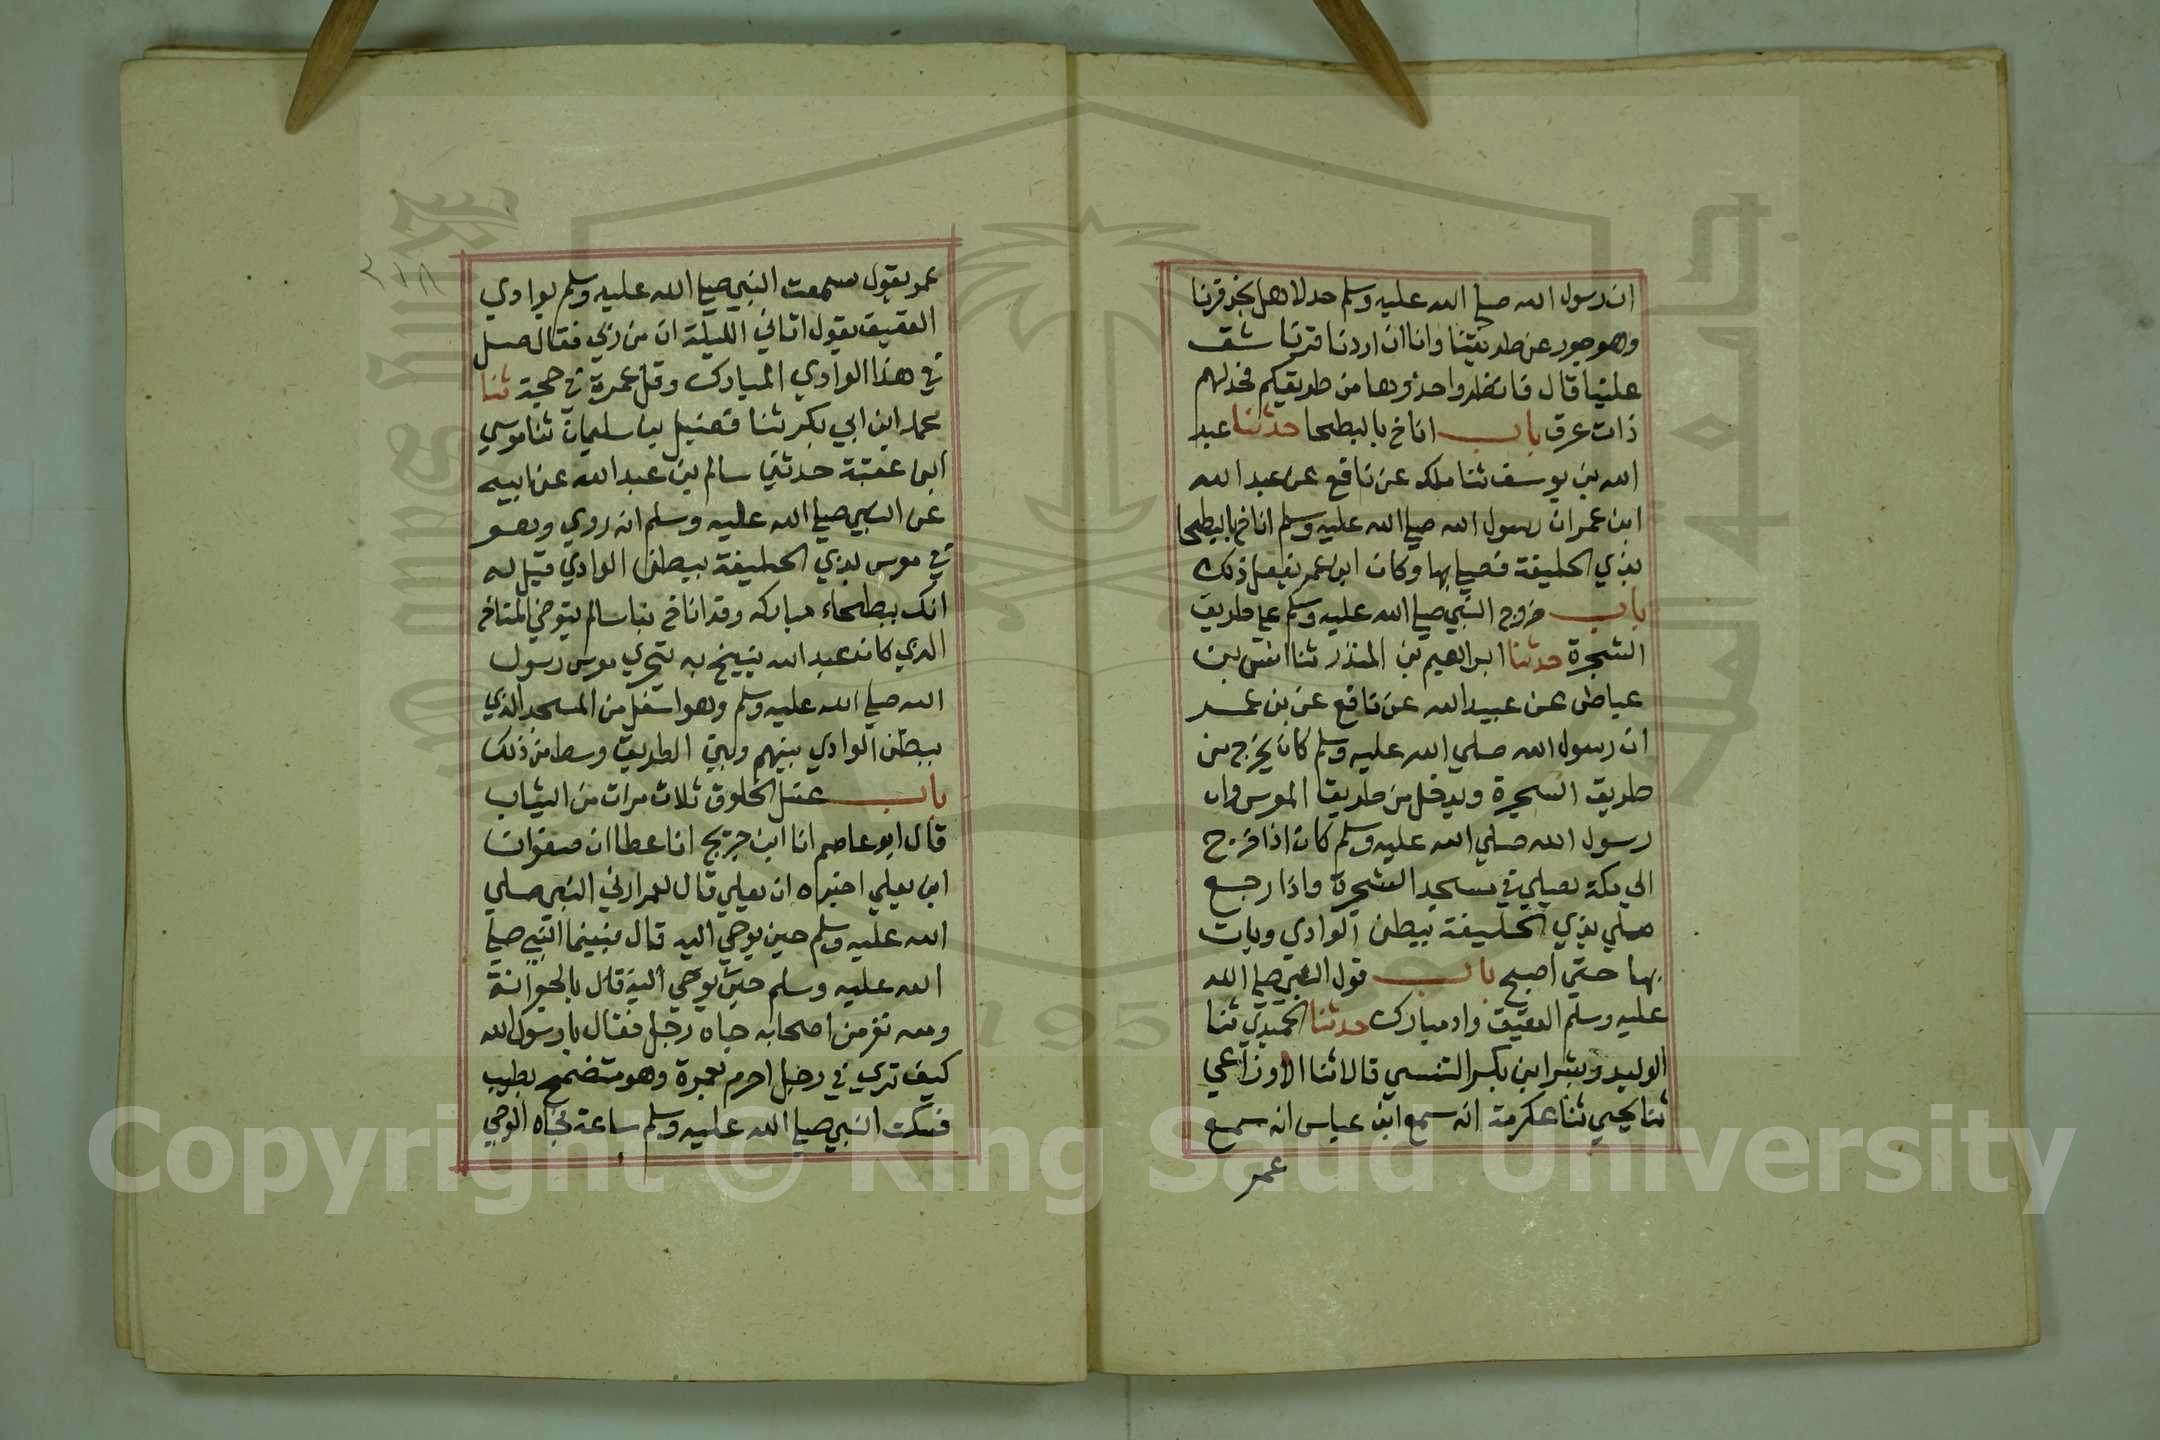 ان رسول الله صلي الله عليه وسلم حد لاهل نجد قرنا
وهو جور عن طريقنا وانا ان اردنا قرنا شق
علينا قال فانظروا حذوها من طريقكم فحد لهم
ذات عرق باب اناخ بالبطحا حدثنا عبد
الله بن يوسف ثنا ملك عن نافع عن عبد الله
ابن عمر ان رسول الله صلي الله عليه وسلم اناخ بالبطحا
بذي الحليفة فصلي بها وكان ابن عمر يفعل ذلك
باب خروج النبي صلي الله عليه وسلم علي طريق
الشجرة حدثنا ابراهيم بن المنذر ثنا انس بن
عياض عن عبيد الله عن نافع عن بن عمر
ان رسول الله صلي الله عليه وسلم كان يخرج من
طريق الشجرة ويدخل من طريق المعرس وان
رسول الله صلي الله عليه وسلم كان اذا خرج
الي مكة يصلي في مسجد الشجرة واذا رجع
صلي بذي الحليفة ببطن الوادي وبات
بها حتي اصبح باب قول النبي صلي الله
عليه وسلم العقيق واد مبارك حدثنا الحميدي ثنا
الوليد وبشر ابن بكر التنسي قالا ثنا الاوزاعي
ثنا يحيي ثنا عكرمة انه سمع ابن عباس انه سمع
عمر
٢١٨
عمر يقول سمعت النبي صلي الله عليه وسلم بوادي
العقيق يقول اتاني الليلة ات من ربي فقال صل
في هذا الوادي المبارك وقل عمرة في حجة ثنا
محمد ابن ابي بكر ثنا فضيل بن سليمان ثنا موسي
ابن عقبة حدثني سالم بن عبد الله عن ابيه
عن النبي صلي الله عليه وسلم انه روي وهو
في معرس بذي الحليفة ببطن الوادي قيل له
انك ببطحاء مباركه وقد اناخ بنا سالم يتوخي المناخ
الذي كان عبد الله ينيخ به يتحري معرس رسول
الله صلي الله عليه وسلم وهو اسفل من المسجد الذي
ببطن الوادي بينهم وبين الطريق وسط من ذلك
باب غسل الخلوق ثلاث مرات من الثياب
قال ابو عاصم انا ابن جريج انا عطا ان صفوان
ابن يعلي اخبره ان يعلي قال لعمر ارني النبي صلي
الله عليه وسلم حين يوحي اليه قال فبينما النبي صلي
الله عليه وسلم حين يوحي اليه قال بالجعرانة
ومعه نفر من اصحابه جاه رجل فقال يا رسول الله
كيف تري في رجل احرم بعمرة وهو متضمح بطيب
فسكت النبي صلي الله عليه وسلم ساعة فجاه الوحي
Copyright © King Saud University